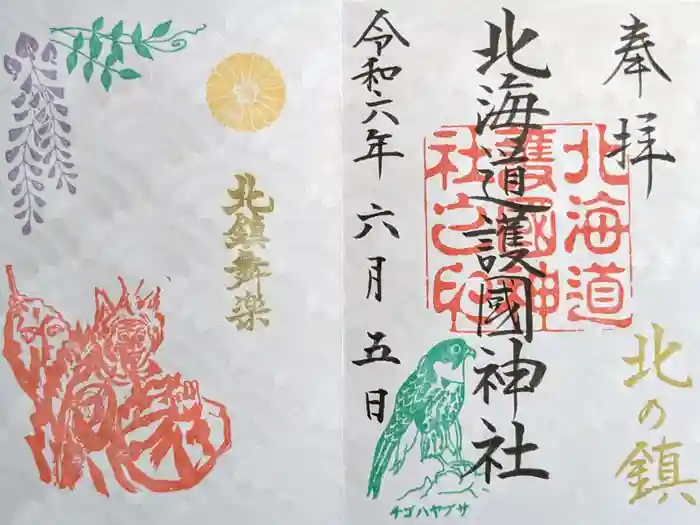 奉拝
北海道護國神社
令和六年 六月 五日
北海道
護國神
社之印
北の鎮
チゴハヤブサ
北鎮舞楽